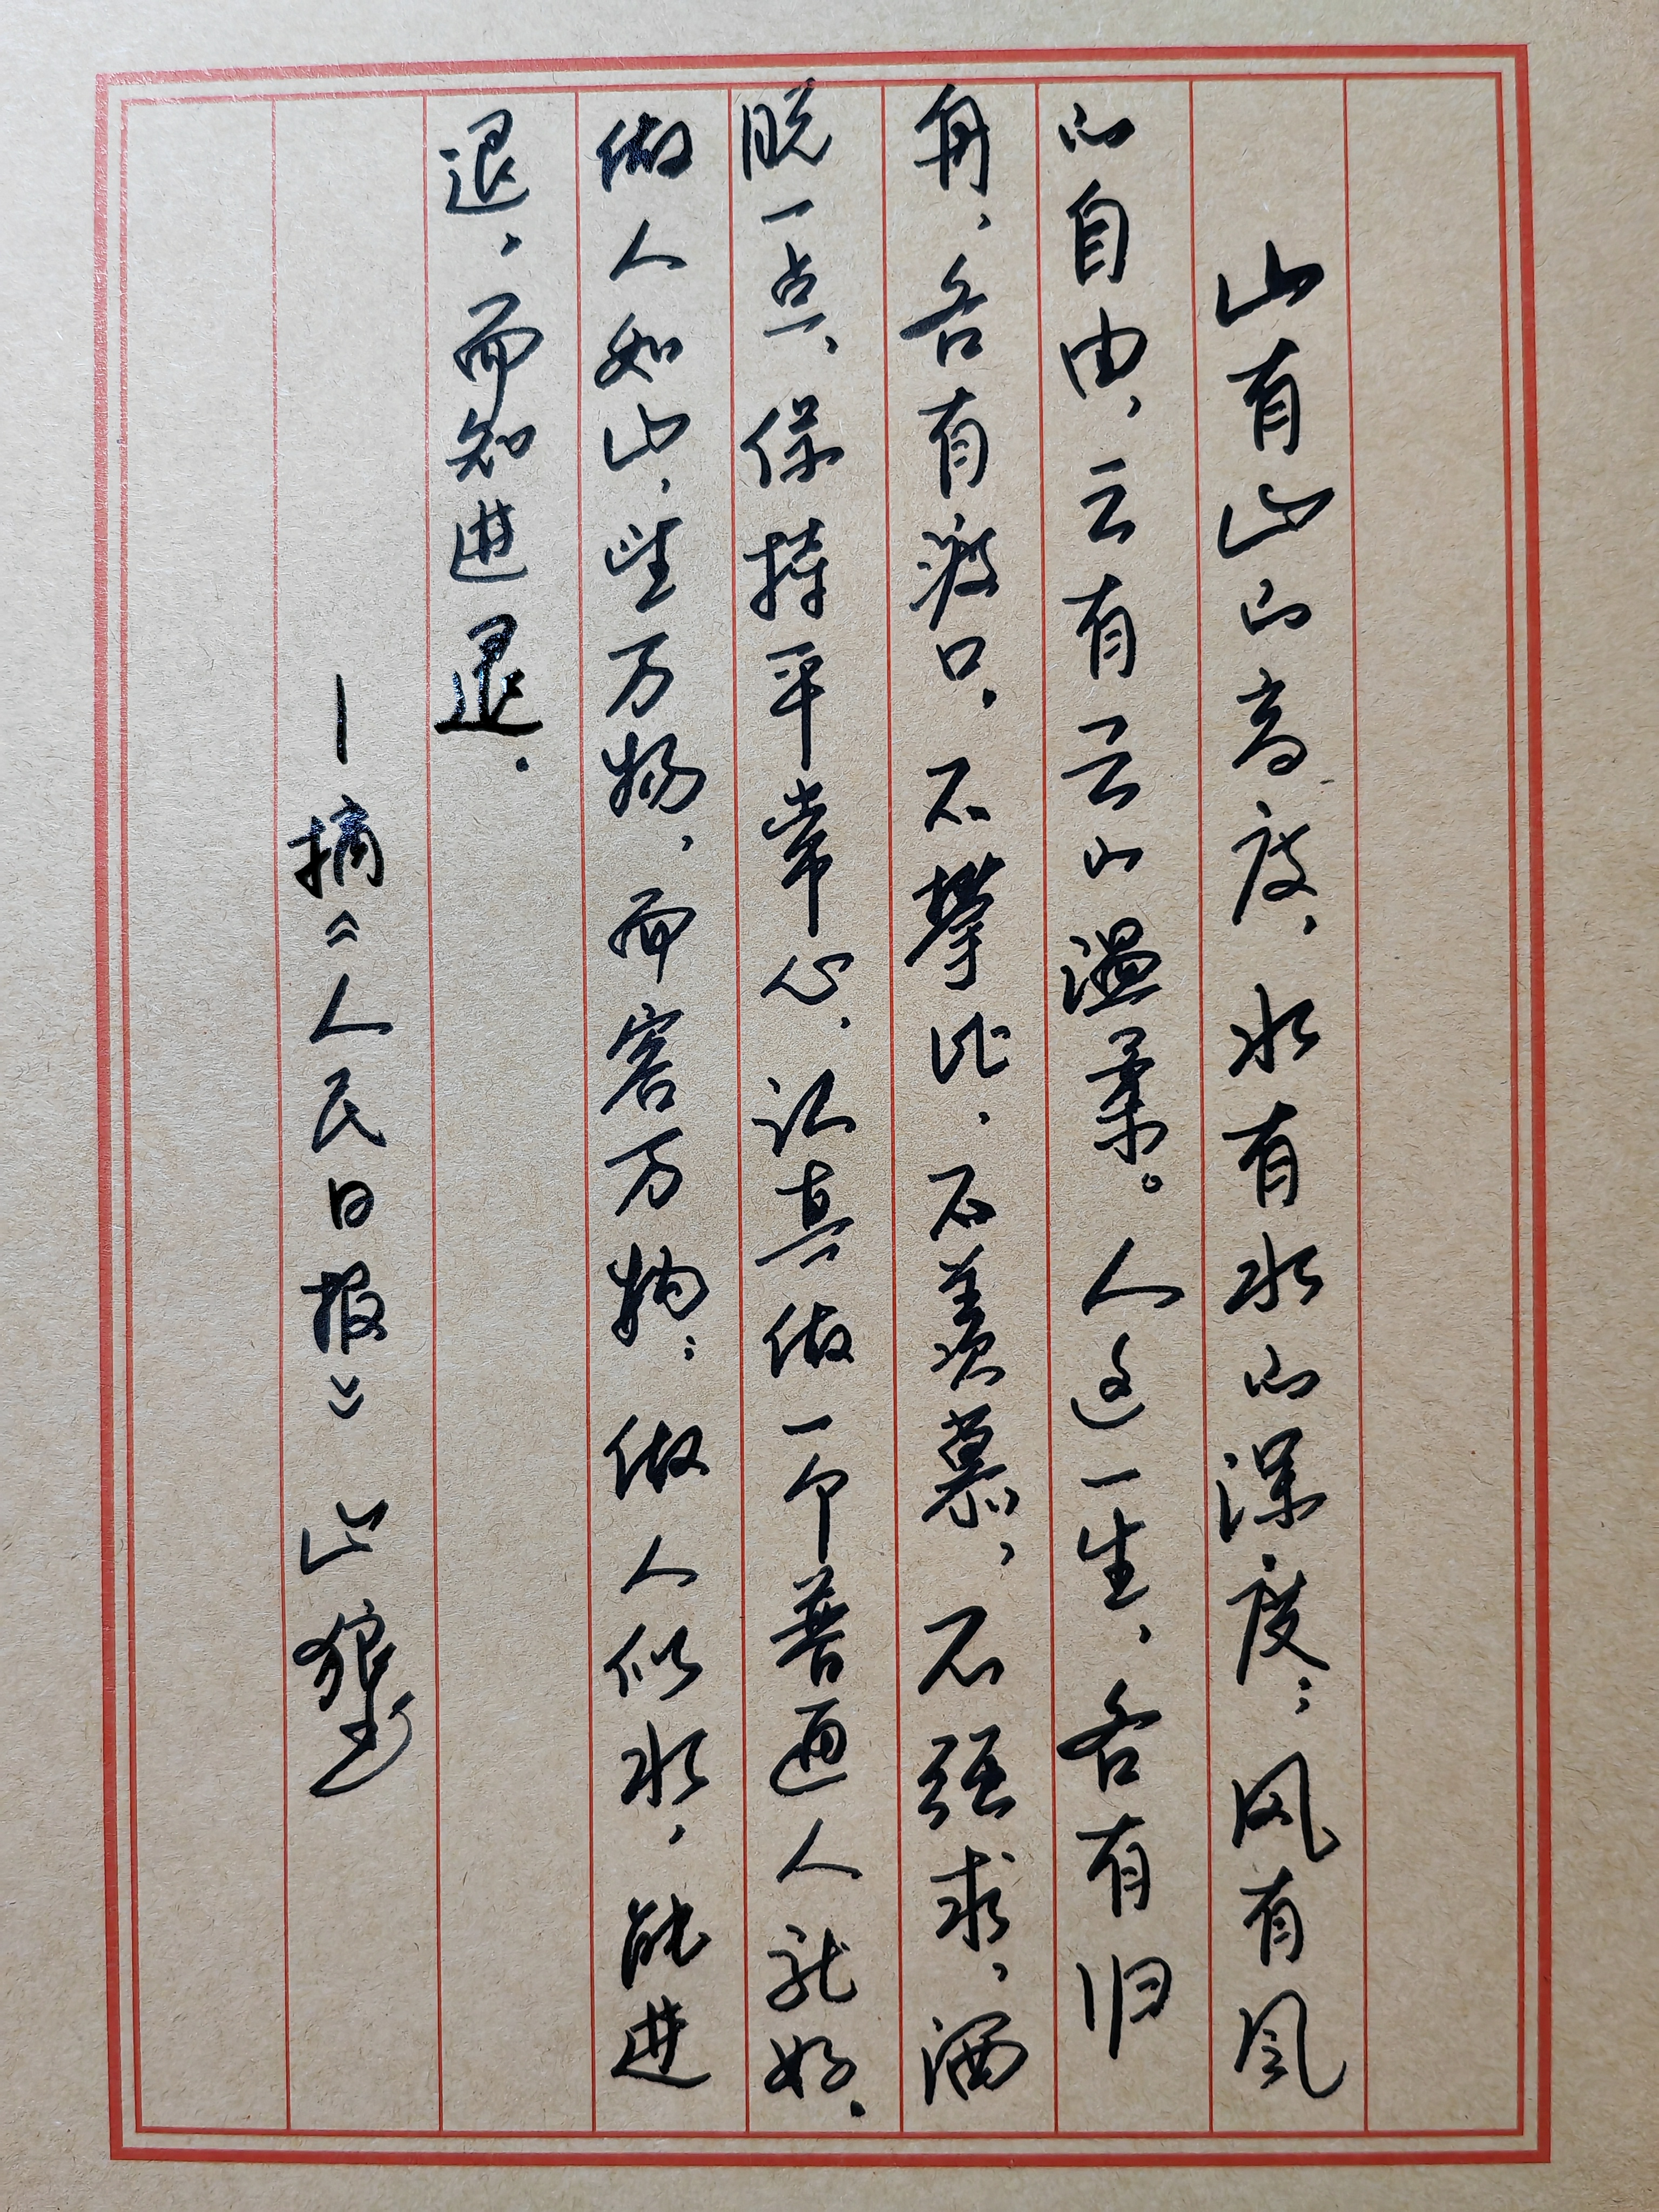 山有山的高度，水有水的深度；风有风
的自由，云有云的温柔。人这一生，各有归
舟，各有渡口。不攀比，不羡慕，不强求，洒
脱一点，保持平常心，认真做一个普通人就好。
做人如山，望万物，而容万物；做人似水，能进
退，而知进退。
—摘《人民日报》 山